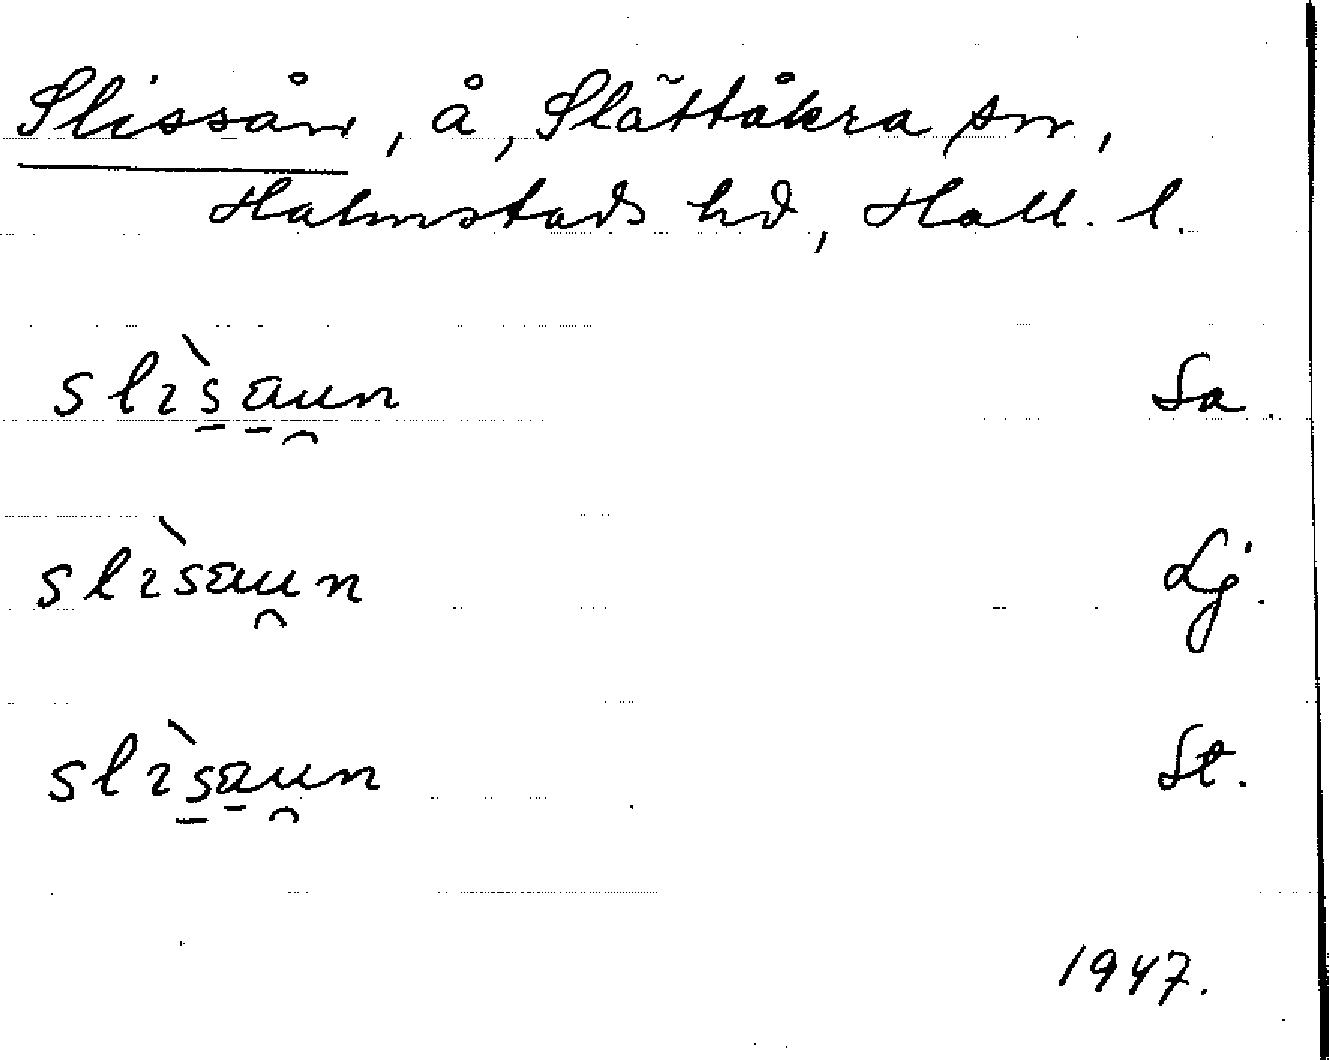 Slissån, å, Slättåkra sn,
Halmstads hd, Hall. l.
slìs̠a̠u̯n Sa.
slìsau̯n Lj.
slìs̠a̠u̯n St.
1947.